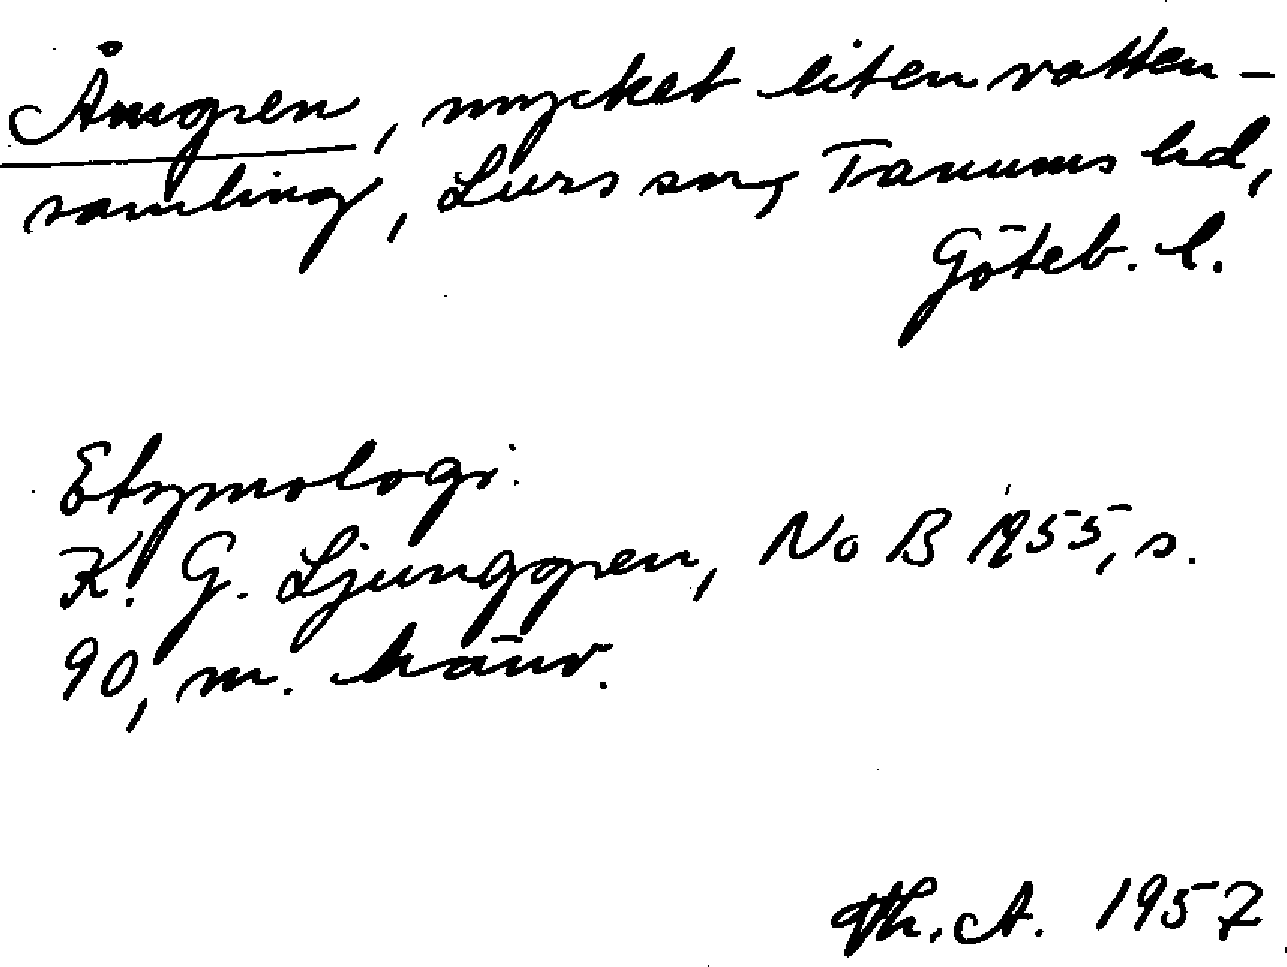 Åmgren, mycket liten vatten-
samling, Lurs sn, Tanums hd,
Göteb. l.
Etymologi.
K. G. Ljunggren, NoB 1955, s.
90, m. hänv.
Th. A. 1957